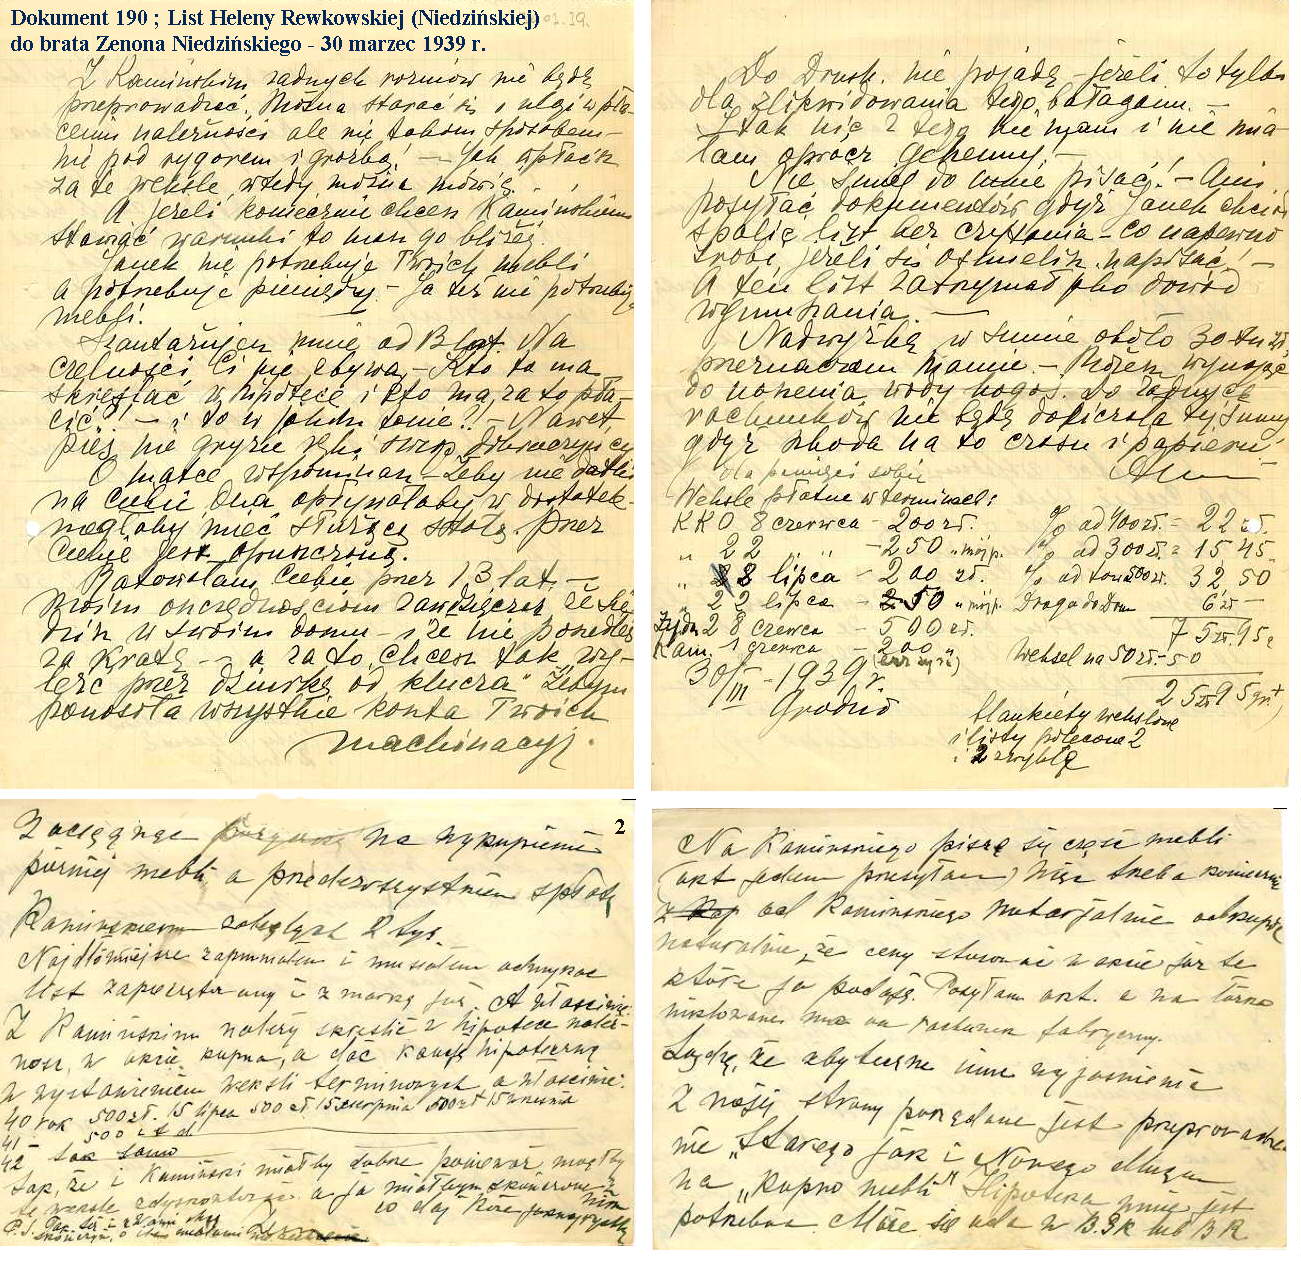 Dokument 190 ; List Heleny Rewkowskiej (Niedzińskiej)
do brata Zenona Niedzińskiego - 30 marzec 1939 r.
Z Kamińskim żadnych rozmów nie będę
przeprowadzać. Można starać się o ulgi w pła-
ceniu należności ale nie takim sposobem -
nie pod rygorem i groźbą! - Jak wpłacisz
za te weksle, wtedy można mówić.
A jeżeli koniecznie chcesz Kamińskiemu
stawiać warunki to masz go bliżej.
Janek nie potrzebuje Twoich mebli
a potrzebuje pieniędzy - ja też nie potrzebuję
mebli.
Szantażujesz mnie od 13 lat. Na
czelności Ci nie zbywa - Kto to ma
skreślać w hipotece i kto ma za to pła-
cić?! - i to w jakim tonie?! - Nawet
pies nie gryzie ręki swego dobroczyńcy
O matce wspominasz - żeby nie datki
na Ciebie Ona opływałaby w dostatek -
mogłaby mieć służącą stałą. Przez
Ciebie jest opuszczona.
Ratowałam Ciebie przez 13 lat -
moim oszczędnościom zawdzięczasz, że sie-
dzisz w swoim domu - i że nie poszedłeś
za kratę - a za to chcesz tak "wy-
leźć przez dziurkę od klucza" żebym
ponosiła wszystkie konta Twoich
machinacyj.
Do Drusk. nie pojadę - jeżeli to tylko
dla zlikwidowania tego bałaganu. -
I tak nic z tego nie mam i nie mia-
łam oprócz gehenny. -
Nie śmiej do mnie pisać! - Ani
posyłać dokumentów gdyż Janek chciał
spalić list bez czytania - co napewno
zrobi jeżeli się ośmielisz napisać! -
A ten list zatrzymał jako dowód
wymuszania. -
Nadwyżkę w sumie około 30-tu zł.
przeznaczam Mamie. - Możesz wynająć
do noszenia wody kogoś. Do żadnych
rachunków nie będę doliczała tej sumy
gdyż szkoda na to czasu i papieru. -
dla pamięci sobie
Weksle płatne w terminach:
KKO 8 czerwca - 200 zł. % od 400 zł. - 22 zł.
" 22 " " - 250 " mój p. % od 300 zł. = 15 45
" 8 lipca - 200 zł. % od 500 zł. 32 50
" 22 lipca - 250 " mój p. Droga do Dom 6 zł -
28 czerwca - 500 zł. 75 zł. 95 g
Kam. 1 czerwca - 200 " Weksel na 50 zł. - 50
30/III - 1939 r. 25 zł 95 gr.
Grodno
blankiety wekslowe
i listy polecone 2
i 2 zwykłe
2
Zaciągnąć na wykupienie
później mebli a przedewszystkiem spłatę
Kamińskiem zaległych 2 tys.
Najdłówniejsze zapomniałem i musiałem odmykać
list zapieczętowany i z marką już. A właściwie:
Z Kamińskim należy skreślić z hipotece należ-
ność, w akcie kupna, a dać kaucję hipoteczną
z wystawieniem weksli terminowych, a właściwie:
40 rok 500 zł. 15 lipca 500 zł 15 sierpnia 500 zł 15 września
41 - 500 i t d.
42 - tak samo
tak, że i Kamiński miałby dobrze ponieważ mógłby
te weksle zdyskontować a ja miałbym skończone z nim
Na Kamińskiego piszę się część mebli
(akt jeden przesyłam) więc trzeba koniecznie
od Kamińskiego notarjalnie odkupić
naturalnie, że ceny stosować w akcie już te
które ja podaję. Posyłam akt. a na
rachunek fabryczny.
Sądzę, że zbyteczne inne wyjaśnienia
Z mojej strony pożądane jest przeprowadze-
nie "Starego jak i Nowego długu
na "kupno mebli" Hipoteka mnie jest
potrzebna. Może się uda w B.G.K lub B R.